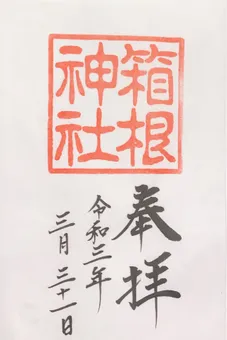 箱根
神社
奉拝
令和三年
三月三十一日